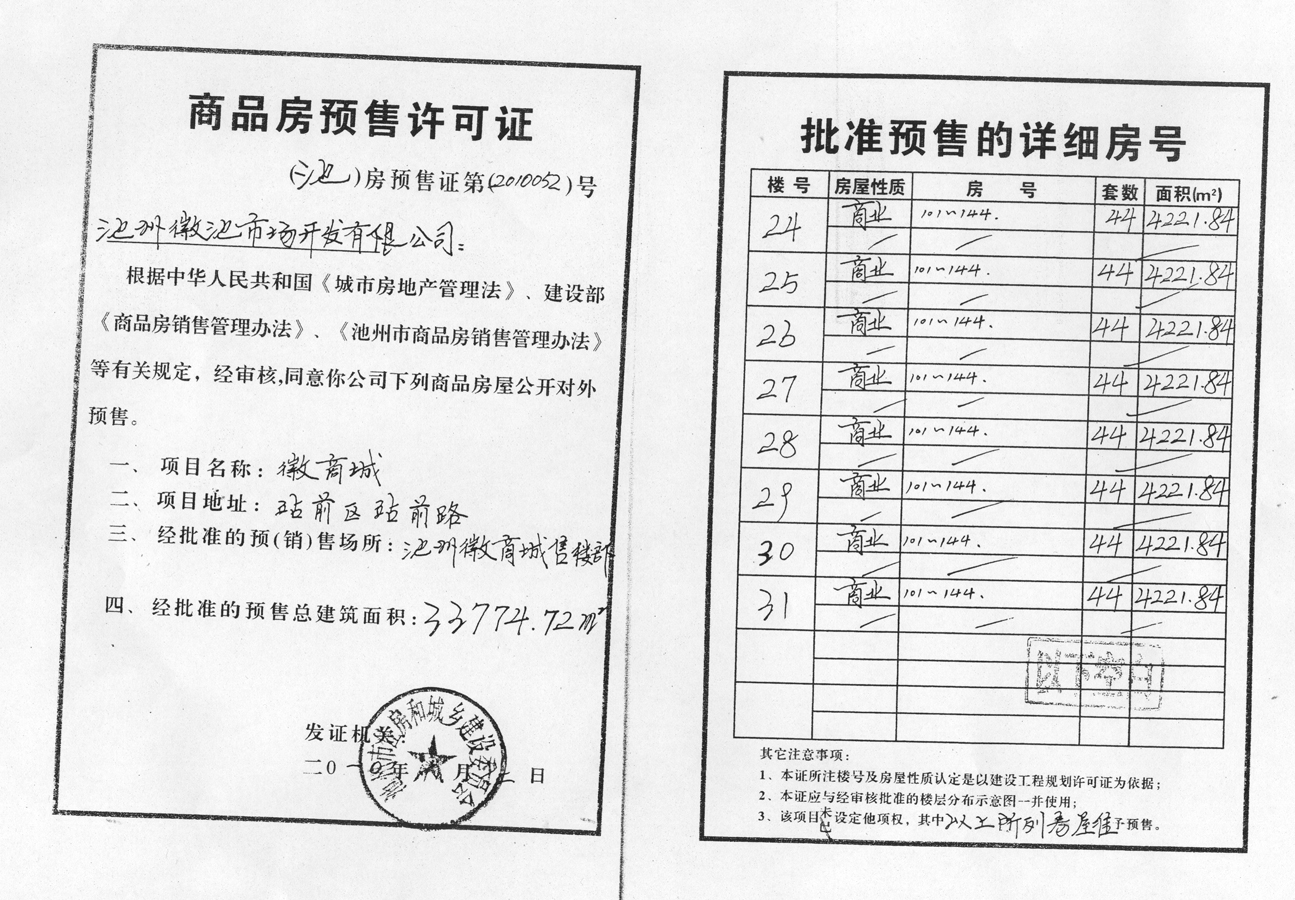 商品房预售许可证
（池）房预售证第(2010052)号
池州徽池市场开发有限公司：
根据中华人民共和国《城市房地产管理法》、建设部
《商品房销售管理办法》、《池州市商品房销售管理办法》
等有关规定，经审核,同意你公司下列商品房屋公开对外
预售。
一、项目名称：徽商城
二、项目地址：站前区站前路
三、经批准的预(销)售场所：池州徽商城售楼部
四、经批准的预售总建筑面积：33774.72m²
发证机关
二0一0年 月 二日
池州市住房和城乡建设委员会
批准预售的详细房号
楼号 房屋性质 房号 套数 面积(m²)
24 商业 101~144. 44 4221.84
25 商业 101~144. 44 4221.84
26 商业 101~144. 44 4221.84
27 商业 101~144. 44 4221.84
28 商业 101~144. 44 4221.84
29 商业 101~144. 44 4221.84
30 商业 101~144. 44 4221.84
31 商业 101~144. 44 4221.84
以下空白
其它注意事项：
1、本证所注楼号及房屋性质认定是以建设工程规划许可证为依据；
2、本证应与经审核批准的楼层分布示意图一并使用；
3、该项目未已设定他项权，其中以上所列房屋准予预售。